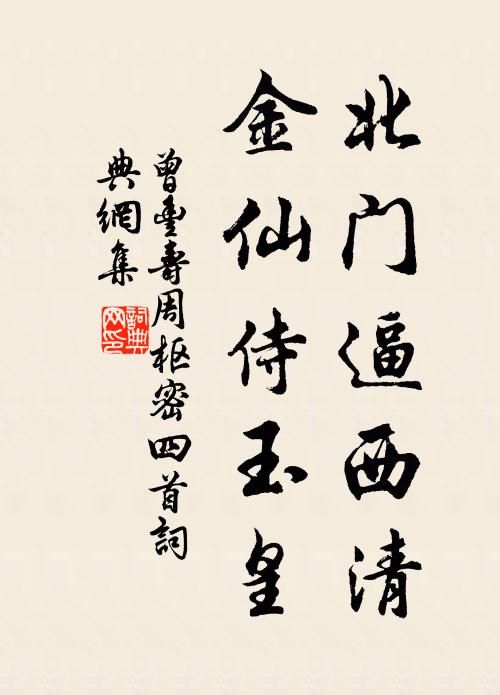 北门逼西清
金仙侍玉皇
曾豐壽周枢密四首詞
典網集
詞典网印